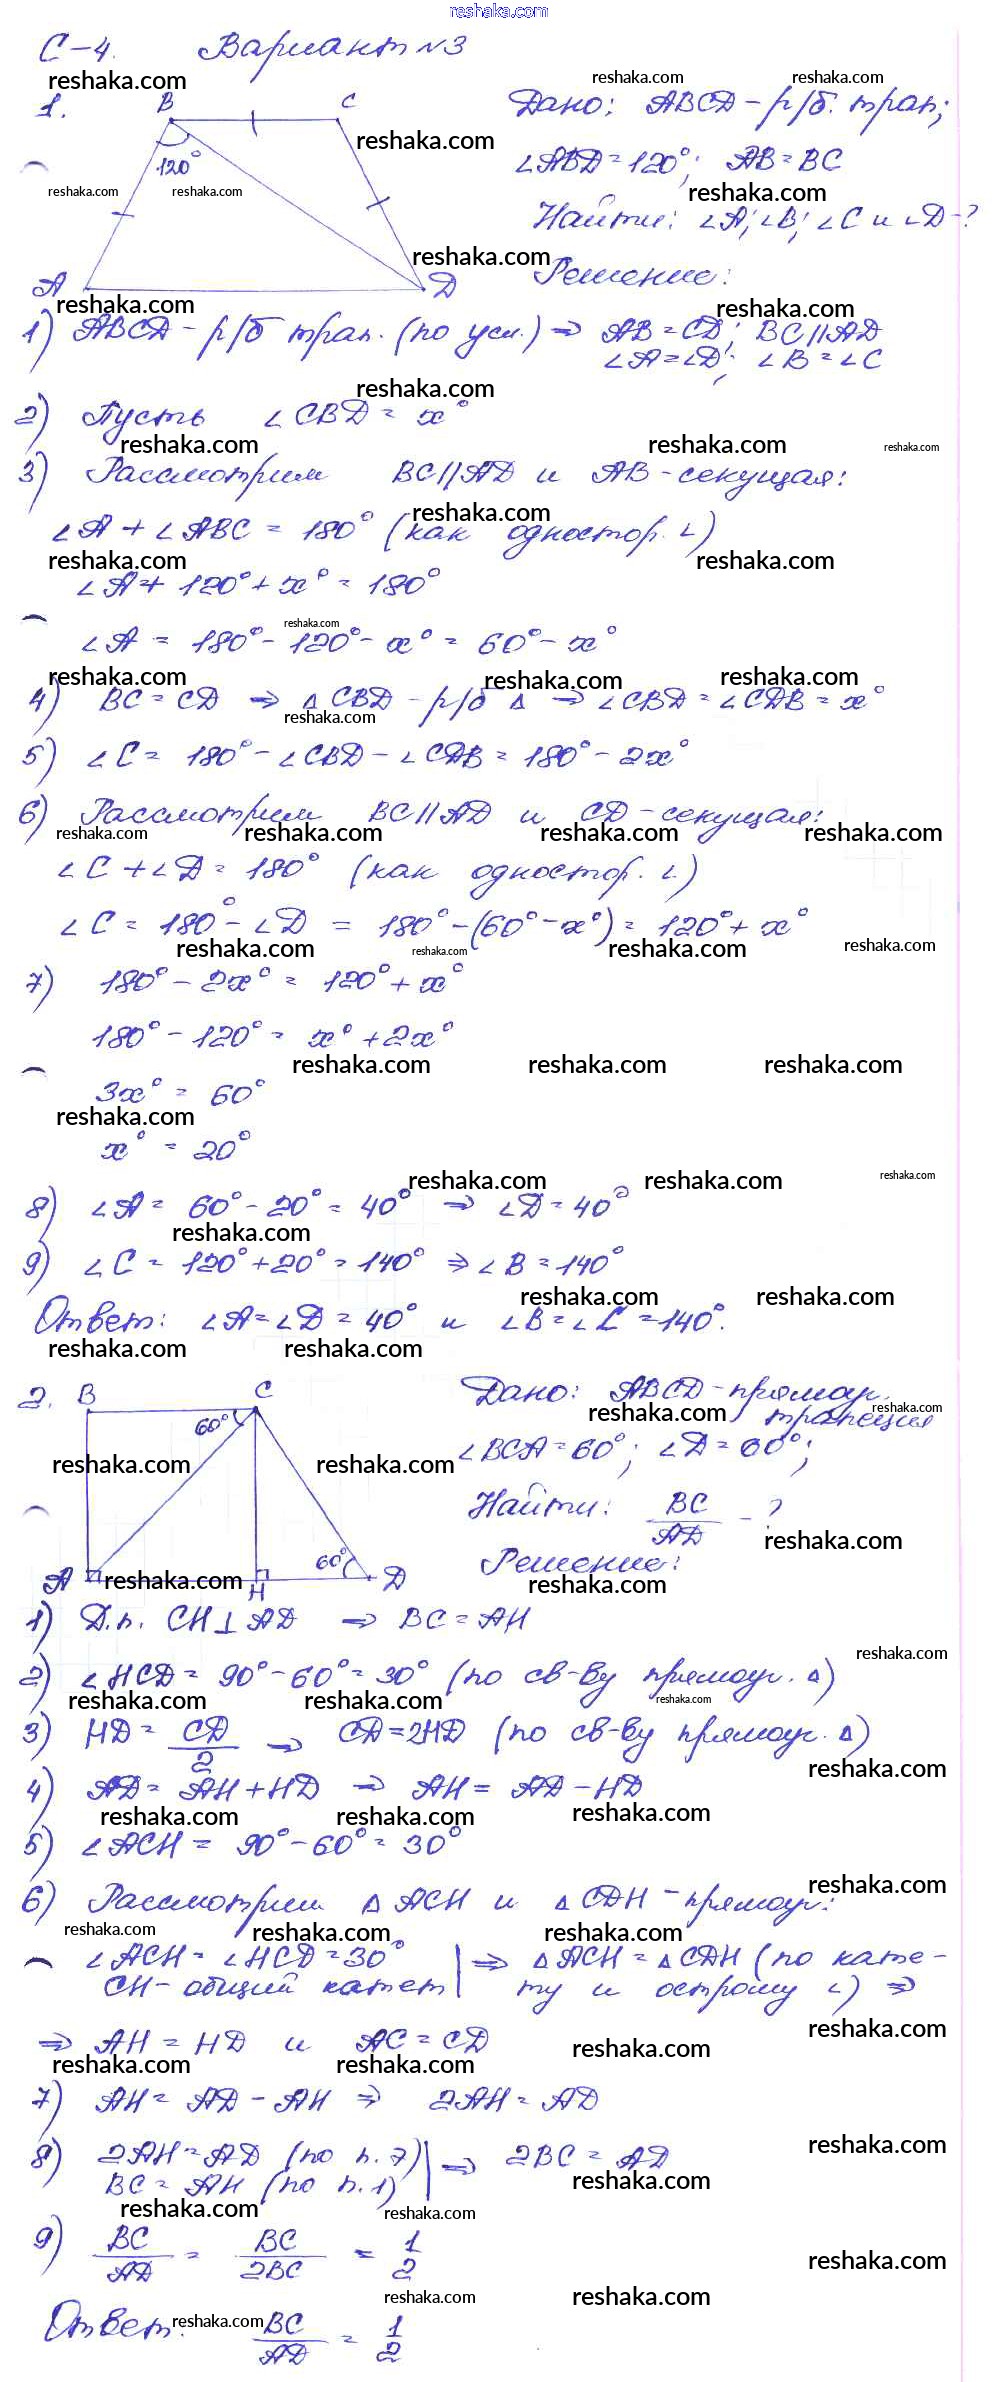 reshaka.com
С-4. Вариант №3
1.
B C
120°
A D
Дано: ABCD - р/б. трап;
∠ABD = 120°; AB = BC
Найти: ∠A; ∠B; ∠C и ∠D - ?
Решение:
1) ABCD - р/б трап. (по усл.) ⇒ AB = CD; BC || AD
∠A = ∠D; ∠B = ∠C
2) Пусть ∠CBD = x°
3) Рассмотрим BC || AD и AB - секущая:
∠A + ∠ABC = 180° (как одностор. ∠)
∠A + 120° + x° = 180°
∠A = 180° - 120° - x° = 60° - x°
4) BC = CD ⇒ △ CBD - р/б △ ⇒ ∠CBD = ∠CDB = x°
5) ∠C = 180° - ∠CBD - ∠CDB = 180° - 2x°
6) Рассмотрим BC || AD и CD - секущая:
∠C + ∠D = 180° (как одностор. ∠)
∠C = 180° - ∠D = 180° - (60° - x°) = 120° + x°
7) 180° - 2x° = 120° + x°
180° - 120° = x° + 2x°
3x° = 60°
x° = 20°
8) ∠A = 60° - 20° = 40° ⇒ ∠D = 40°
9) ∠C = 120° + 20° = 140° ⇒ ∠B = 140°
Ответ: ∠A = ∠D = 40° и ∠B = ∠C = 140°.
2.
B C
60°
60°
A H D
Дано: ABCD - прямоуг. трапеция
∠BCA = 60°; ∠D = 60°;
Найти: BC/AD - ?
Решение:
1) Д.п. CH ⊥ AD ⇒ BC = AH
2) ∠HCD = 90° - 60° = 30° (по св-ву прямоуг. △)
3) HD = CD/2 ⇒ CD = 2HD (по св-ву прямоуг. △)
4) AD = AH + HD ⇒ AH = AD - HD
5) ∠ACH = 90° - 60° = 30°
6) Рассмотрим △ ACH и △ CDH - прямоуг:
∠ACH = ∠HCD = 30° | ⇒ △ ACH = △ CDH (по кате-
CH - общий катет | ту и острому ∠) ⇒
⇒ AH = HD и AC = CD
7) AH = AD - AH ⇒ 2AH = AD
8) 2AH = AD (по п. 7) | ⇒ 2BC = AD
BC = AH (по п. 1) |
9) BC/AD = BC/2BC = 1/2
Ответ: BC/AD = 1/2